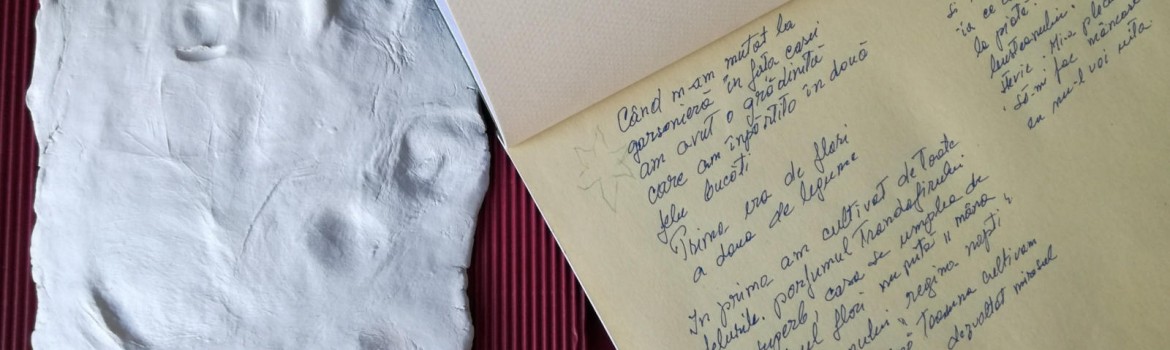 Când m-am mutat la
garsonieră în fața casei
am avut o grădiniță
care am împărțito în două
felu bucăți
Prima era de flori
a doua de legume
În prima am cultivat de Toate
felurile. parfumul Trandafirului
superb, casa se umplea de
flori nu puta " mâna
" regina nopți "
Toamna cultivam
dezvoltat mirosul
la piață
ștevie. Mi-a plăcut
să-mi fac mâncare
eu nu-l voi uita